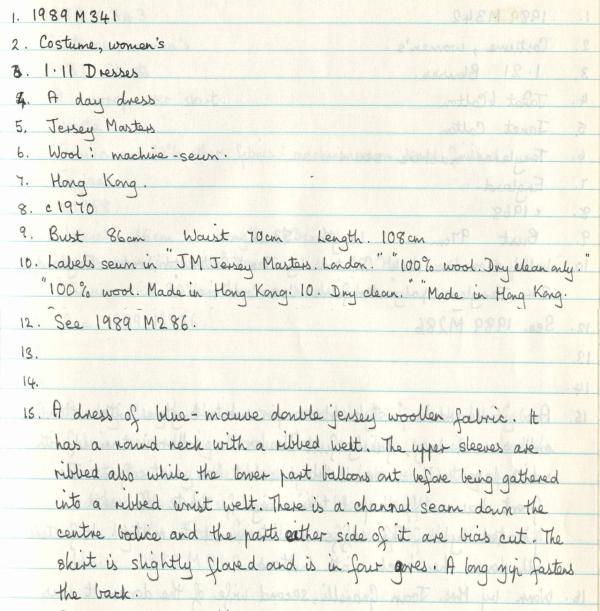 1. 1989 M341
2. Costume, women's
3. 1.11 Dresses
4. A day dress
5. Jersey Masters
6. Wool : machine-sewn.
7. Hong Kong.
8. c1970
9. Bust 86cm Waist 70cm Length. 108cm
10. Labels sewn in "JM Jersey Masters. London." "100% wool. Dry clean only."
"100% wool. Made in Hong Kong. 10. Dry clean." "Made in Hong Kong.
12. See 1989 M286.
13.
14.
15. A dress of blue-mauve double jersey woollen fabric. It
has a round neck with a ribbed welt. The upper sleeves are
ribbed also while the lower part balloons out before being gathered
into a ribbed wrist welt. There is a channel seam down the
centre bodice and the parts either side of it are bias cut. The
skirt is slightly flared and is in four gores. A long zip fastens
the back.